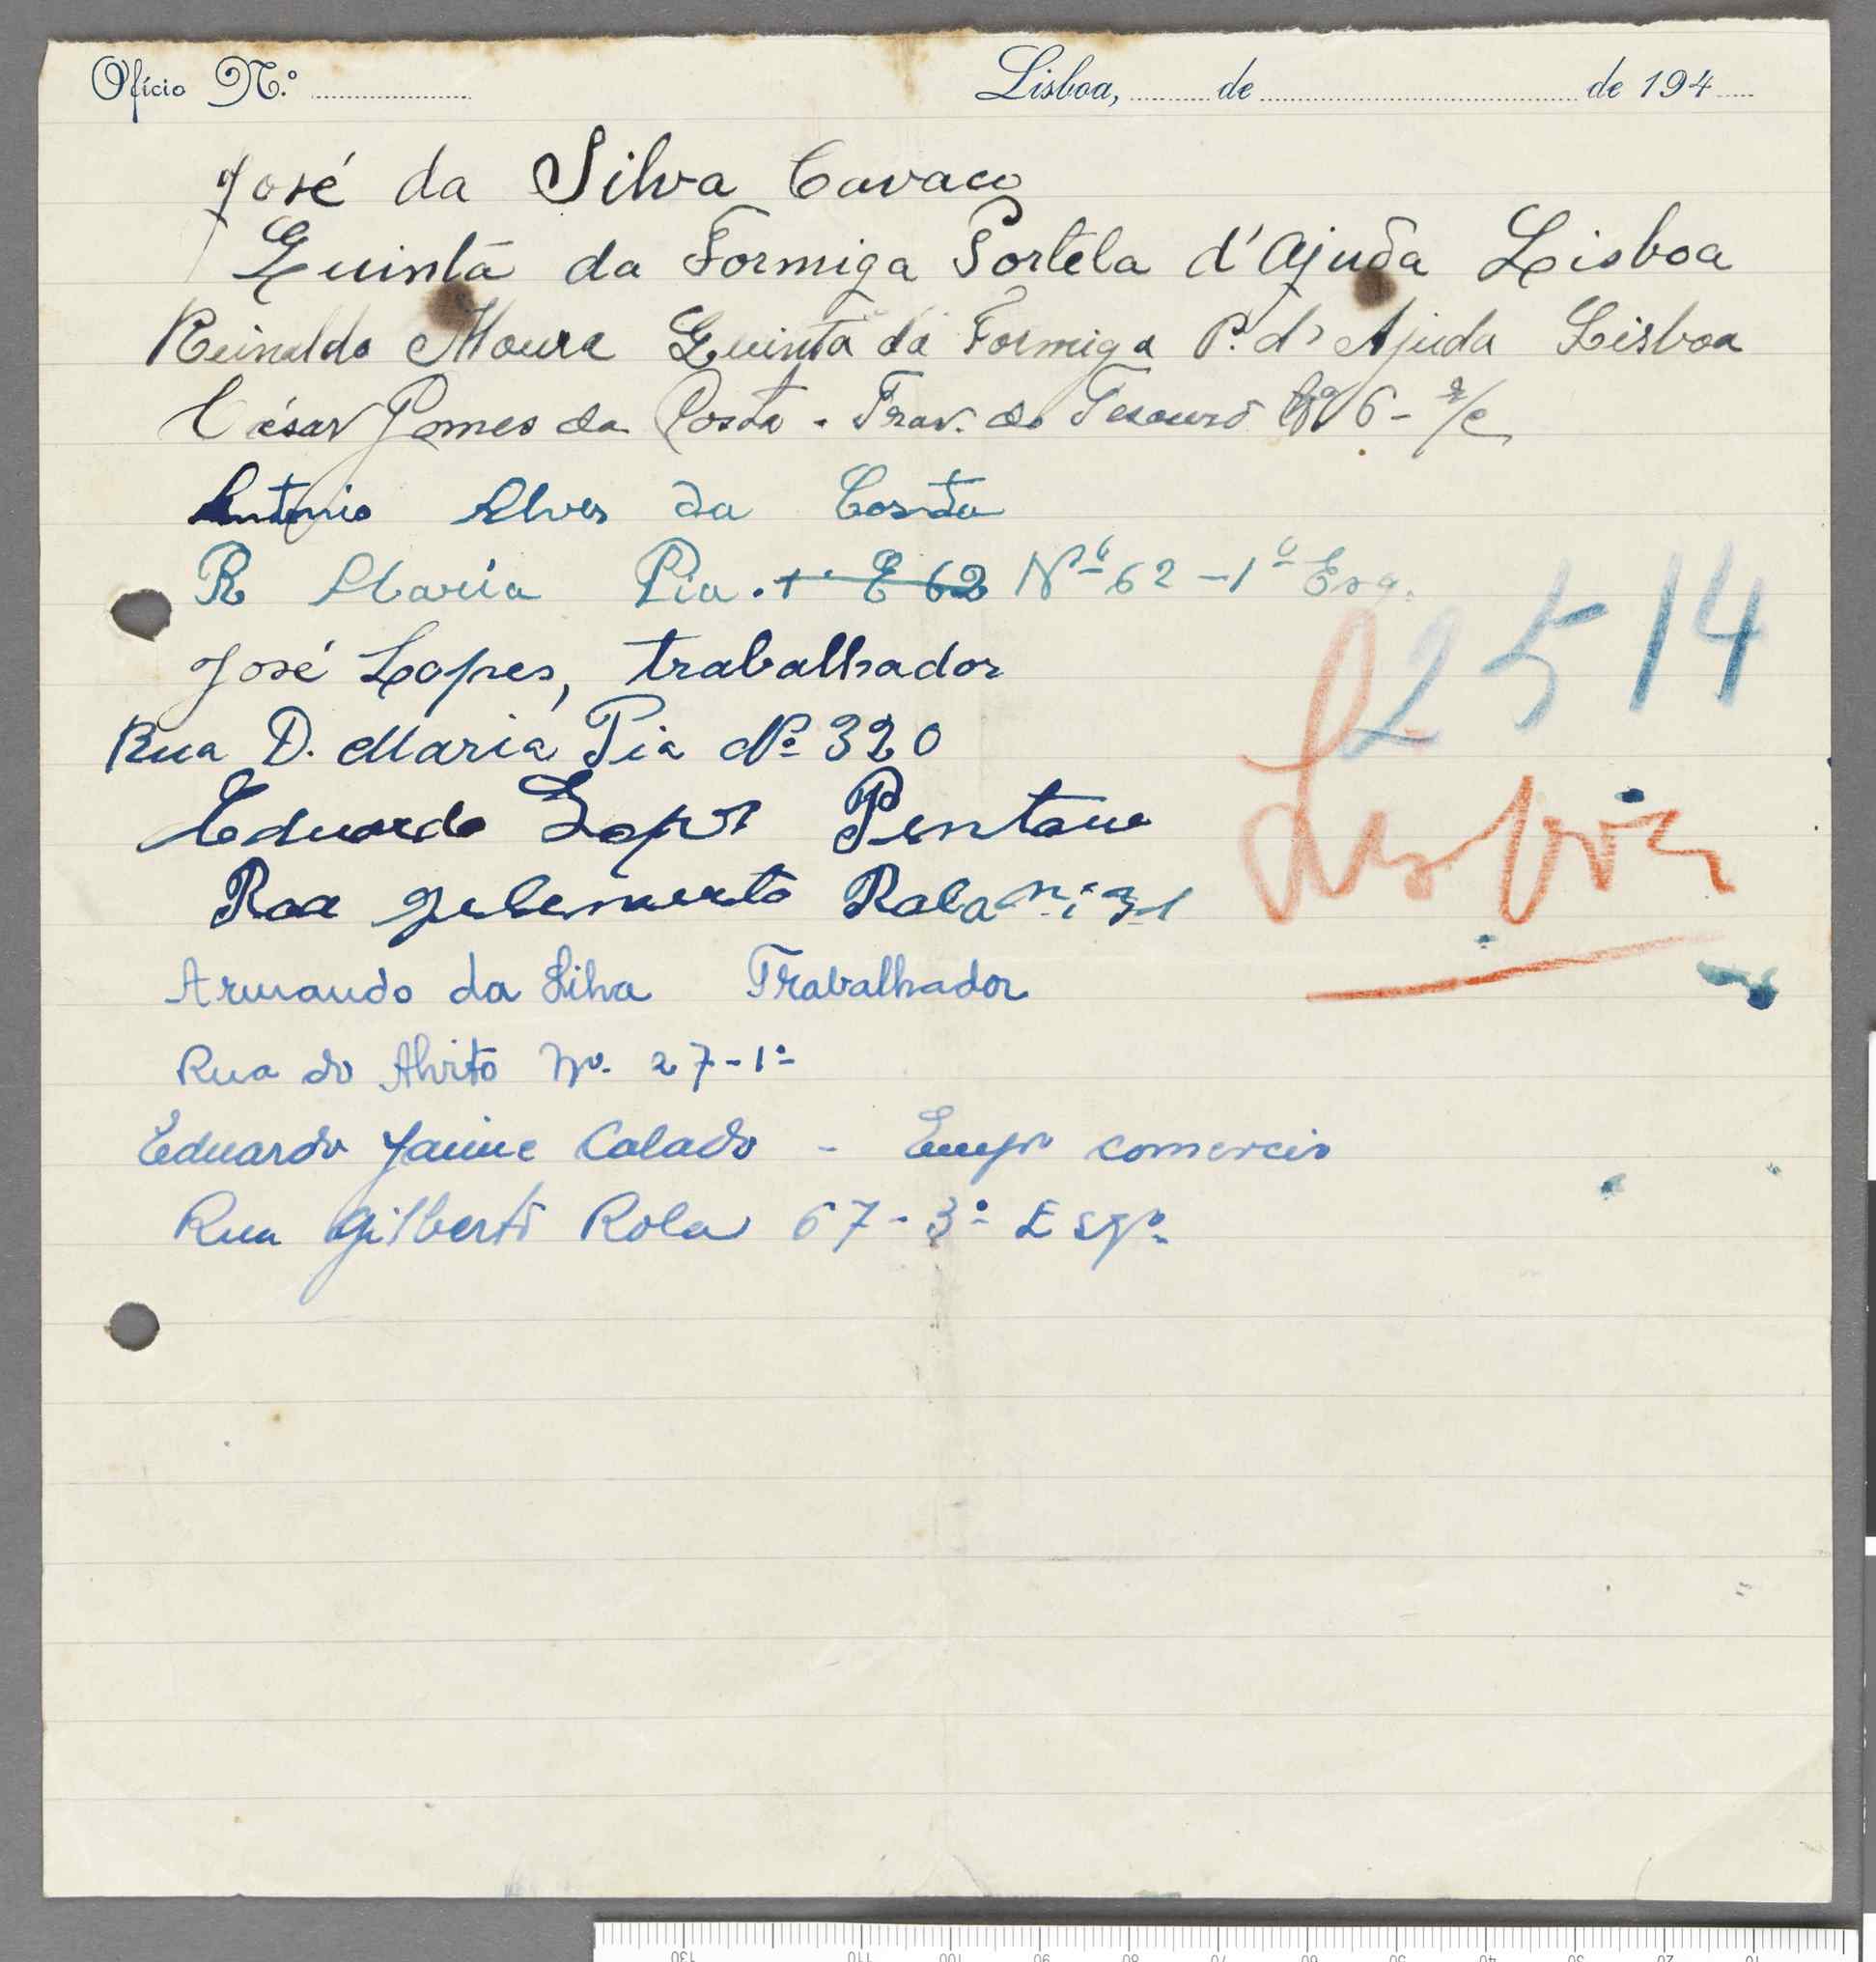 Ofício N.º
Lisboa, de de 194
José da Silva Cavaco
Quinta da Formiga Portela d'Ajuda Lisboa
Reinaldo Moura Quinta da Formiga P. d'Ajuda Lisboa
César Gomes da Costa - Trav. do Tesouro 6 - r/c
António Alves da Costa
R Maria Pia . 62 Nº 62 - 1º Esq.
José Lopes, trabalhador
2514
Rua D. Maria Pia Nº 320
Lisboa
Eduardo Lopes
Roa Rola
Armando da Silva Trabalhador
Rua do Alvito Nº. 27-1º
Eduardo Jaime Calado - Empº comercio
Rua Gilberto Rola 67-3º Esqº